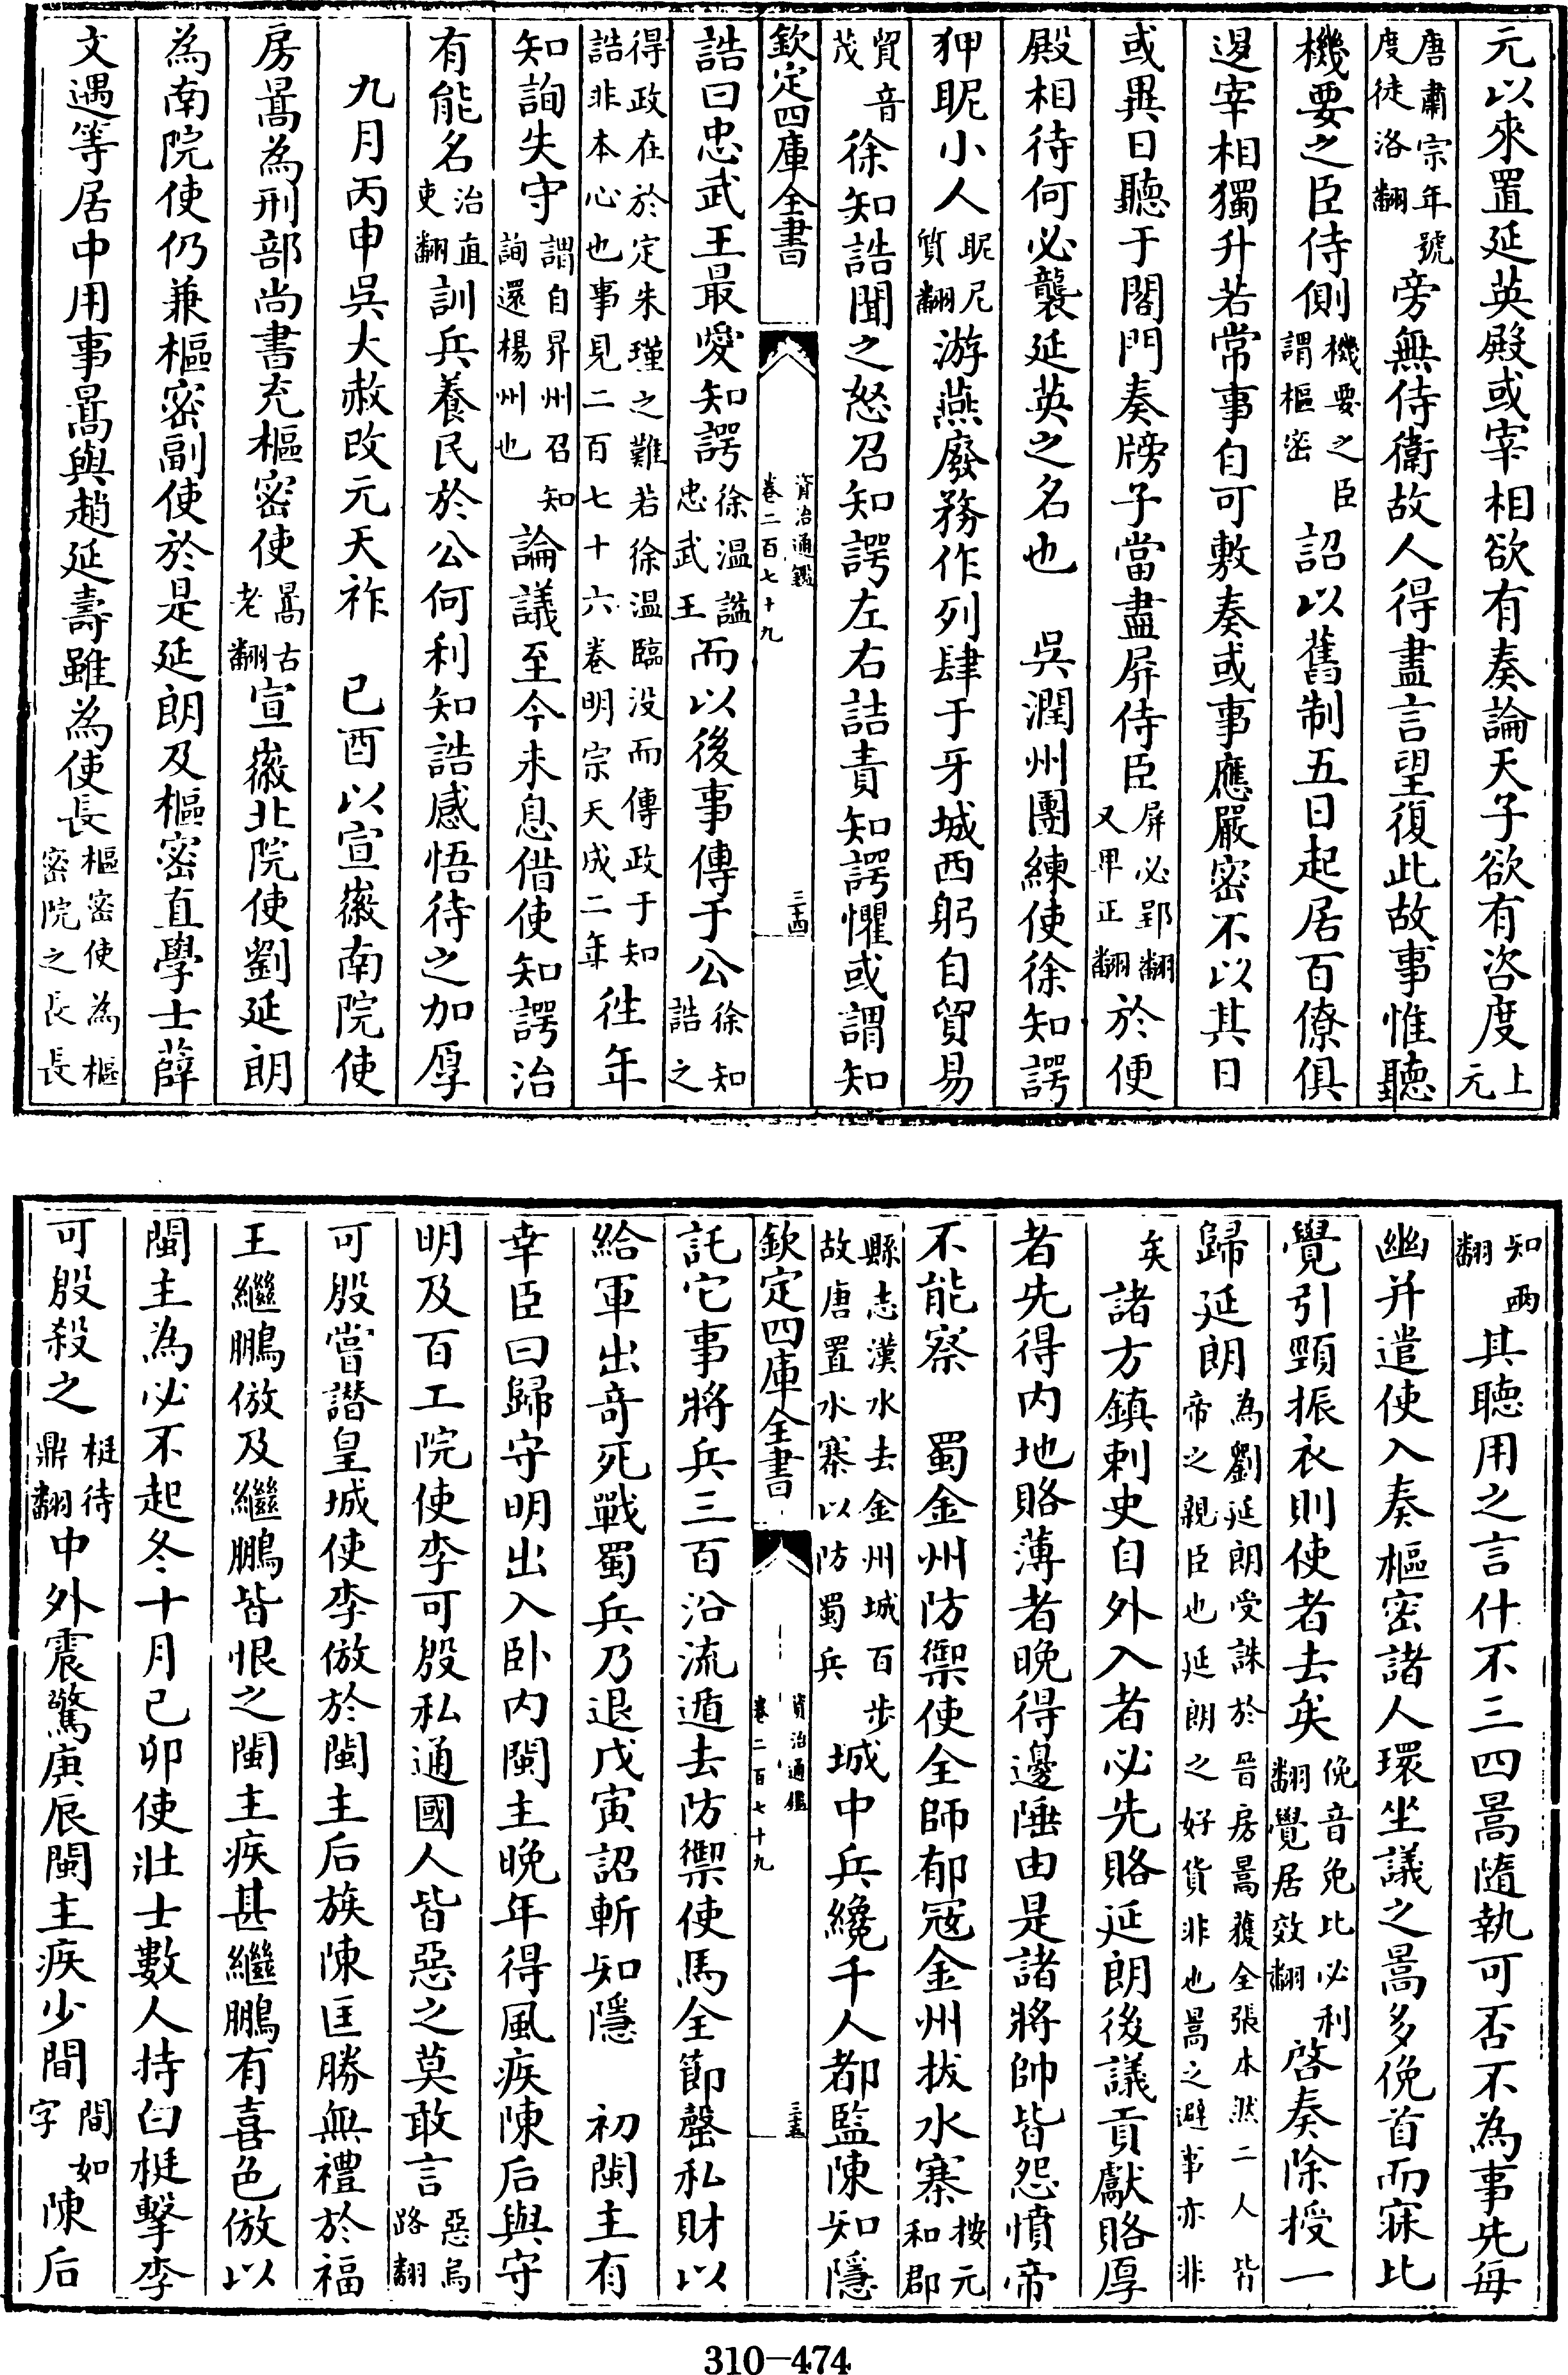 元以來置延英殿或宰相欲有奏論天子欲有咨度上元
唐肅宗年號度徒洛翻旁無侍衛故人得盡言望復此故事惟聽
機要之臣侍側機要之臣謂樞密詔以舊制五日起居百僚俱
退宰相獨升若常事自可敷奏或事應嚴密不以其日
或異日聽于閤門奏牓子當盡屏侍臣屏必郢翻又卑正翻於便
殿相待何必襲延英之名也　吳潤州團練使徐知諤
狎昵小人昵尼質翻游燕廢務作列肆于牙城西躬自貿易
貿音茂徐知誥聞之怒召知諤左右詰責知諤懼或謂知
欽定四庫全書　資治通鑑卷二百七十九　三十四
誥曰忠武王最愛知諤徐溫諡忠武王而以後事傳于公徐知誥之
得政在於定朱瑾之難若徐溫臨沒而傳政于知誥非本心也事見二百七十六卷明宗天成二年往年
知詢失守謂自昇州召知詢還楊州也論議至今未息借使知諤治
有能名治直吏翻訓兵養民於公何利知誥感悟待之加厚
九月丙申吳大赦改元天祚　己酉以宣徽南院使
房暠為刑部尚書充樞密使暠古老翻宣徽北院使劉延朗
為南院使仍兼樞密副使於是延朗及樞密直學士薛
文遇等居中用事暠與趙延壽雖為使長樞密使為樞密院之長長
知兩翻其聽用之言什不三四暠隨執可否不為事先每
幽并遣使入奏樞密諸人環坐議之暠多俛首而寐比
覺引頸振衣則使者去矣俛音免比必利翻覺居效翻啓奏除授一
歸延朗為劉延朗受誅於晉房暠獲全張本然二人皆帝之親臣也延朗之好貨非也暠之避事亦非
矣諸方鎮刺史自外入者必先賂延朗後議貢獻賂厚
者先得內地賂薄者晚得邊陲由是諸將帥皆怨憤帝
不能察　蜀金州防禦使全師郁寇金州拔水寨按元和郡
縣志漢水去金州城百步故唐置水寨以防蜀兵城中兵纔千人都監陳知隱
欽定四庫全書　資治通鑑卷二百七十九　三十五
託它事將兵三百沿流遁去防禦使馬全節罄私財以
給軍出奇死戰蜀兵乃退戊寅詔斬知隱　初閩主有
幸臣曰歸守明出入卧內閩主晚年得風疾陳后與守
明及百工院使李可殷私通國人皆惡之莫敢言惡烏路翻
可殷嘗譖皇城使李倣於閩主后族陳匡勝無禮於福
王繼鵬倣及繼鵬皆恨之閩主疾甚繼鵬有喜色倣以
閩主為必不起冬十月己卯使壯士數人持白梃擊李
可殷殺之梃待鼎翻中外震驚庚辰閩主疾少間間如字陳后
310-474